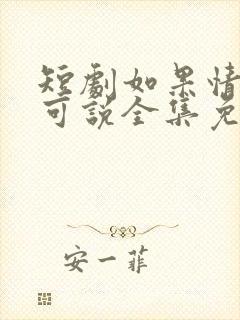 短劇如果情
可說全集免
安一菲